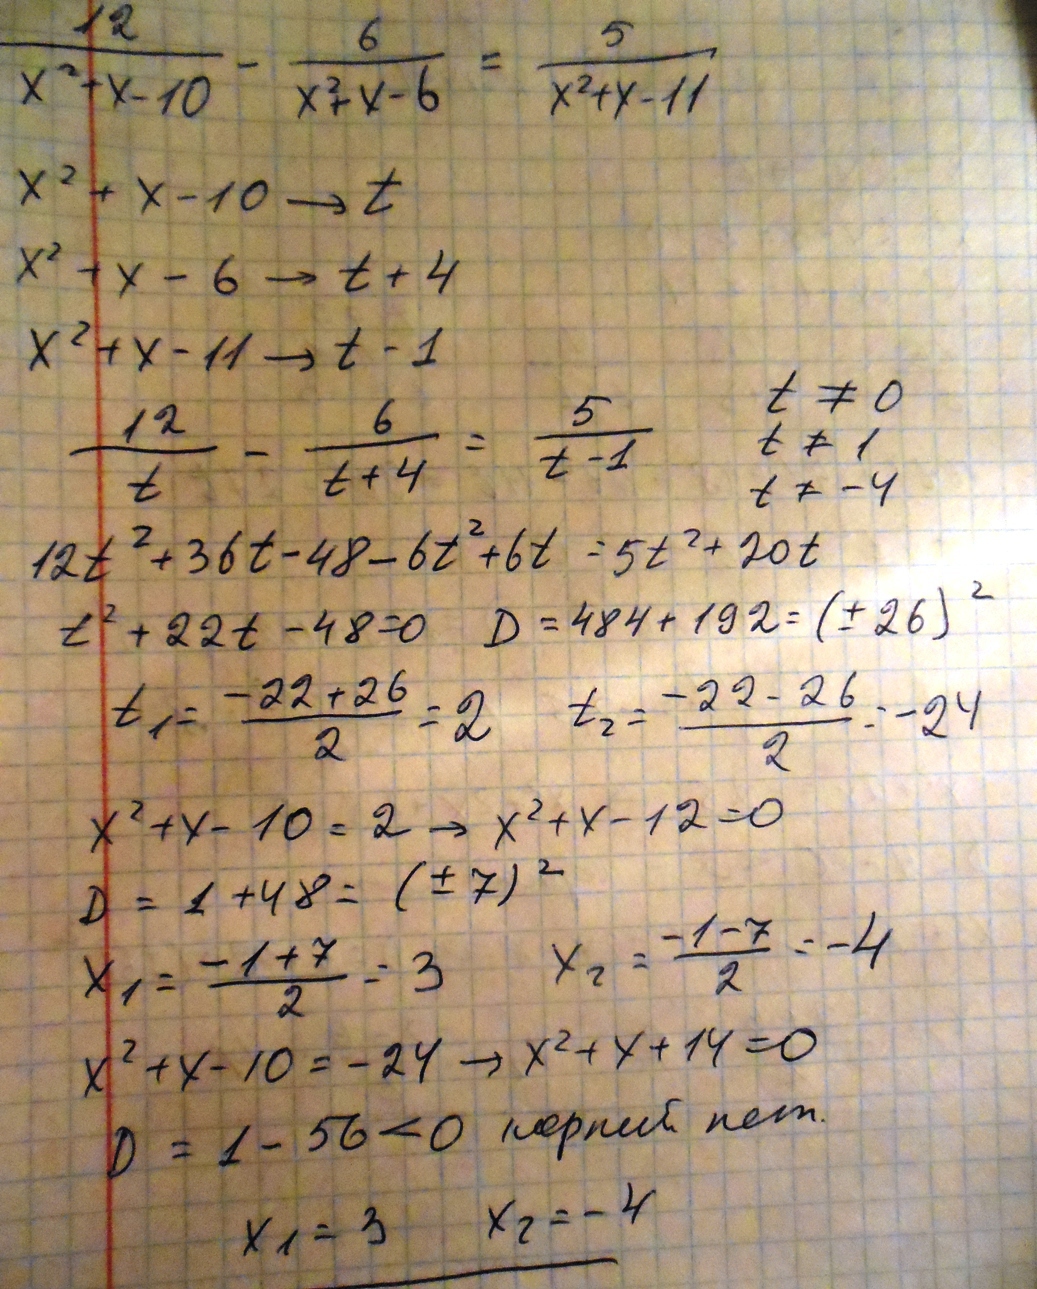 12/(x²+x-10) - 6/(x²+x-6) = 5/(x²+x-11)
x² + x - 10 → t
x² + x - 6 → t + 4
x² + x - 11 → t - 1
12/t - 6/(t+4) = 5/(t-1)
t ≠ 0
t ≠ 1
t ≠ -4
12t² + 36t - 48 - 6t² + 6t = 5t² + 20t
t² + 22t - 48 = 0 D = 484 + 192 = (± 26)²
t₁ = (-22+26)/2 = 2 t₂ = (-22-26)/2 = -24
x² + x - 10 = 2 → x² + x - 12 = 0
D = 1 + 48 = (± 7)²
x₁ = (-1+7)/2 = 3 x₂ = (-1-7)/2 = -4
x² + x - 10 = -24 → x² + x + 14 = 0
D = 1 - 56 < 0 корней нет.
x₁ = 3 x₂ = -4